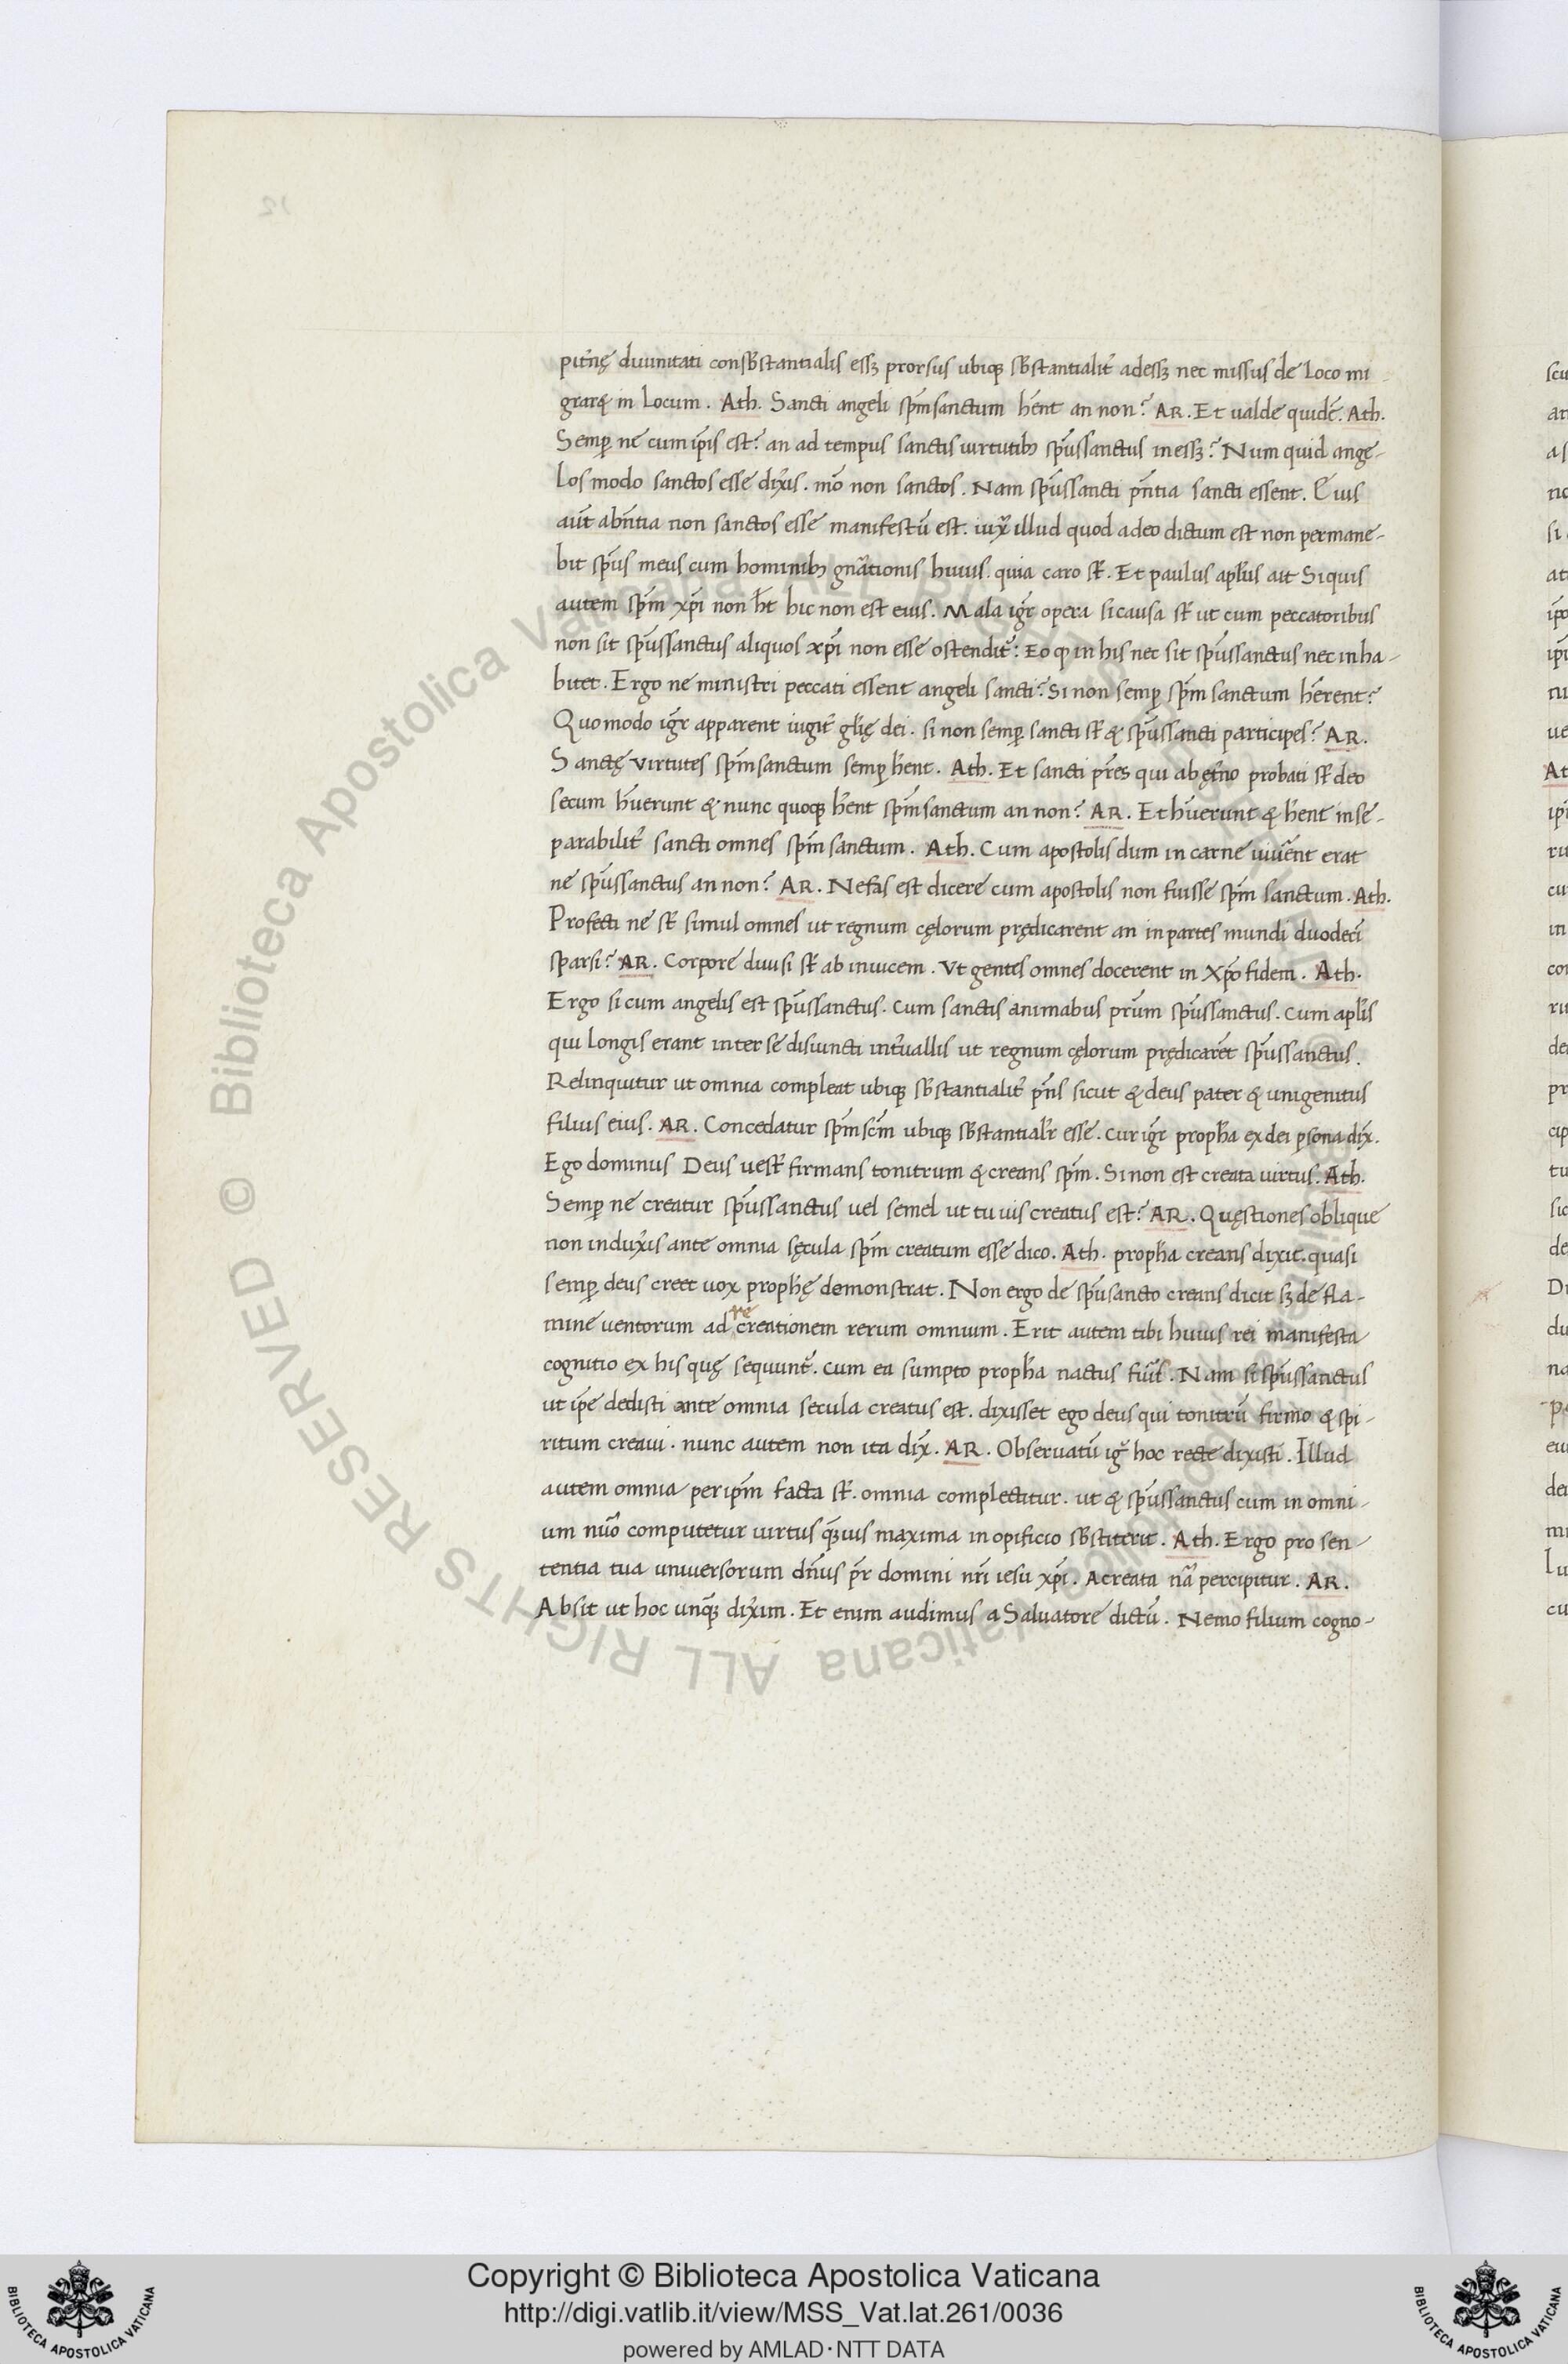 pit̄nę diuinitati consb̄stantialis essꝫ prorsus ubiqꝫ sb̄stantialit̄ adessꝫ nec missus de loco mi-
grarꝫ in locum. Ath. Sancti angeli sp̄m sanctum hn̄t an non? AR. Et ualde quidē. Ath.
Semp̱ ne cum ip̄is est? an ad tempus sanctis uirtutibꝫ sp̄ussanctus inessꝫ? Num quid ange-
los modo sanctos esse dix̄is. mō non sanctos. Nam sp̄ussancti pn̄tia sancti essent. Eius
aūt abn̄tia non sanctos esse manifestū est. iux̄ illud quod adeo dictum est non permane-
bit sp̄us meus cum hominibꝫ gn̄ationis huius. quia caro st̄. Et paulus apl̄us ait Si quis
autem sp̄m xp̄i non ħt hic non est eius. Mala igr̄ opera si causa st̄ ut cum peccatoribus
non sit sp̄ussanctus aliquos xp̄i non esse ostendit̄: Eo ꝙ in his nec sit sp̄ussanctus nec inha-
bitet. Ergo ne ministri peccati essent angeli sancti? Si non semp̱ sp̄m sanctum hērent?
Quomodo igr̄ apparent iugit̄ gl̄ię dei. si non semp̱ sancti st̄ & sp̄ussancti participes? AR.
Sanctę virtutes sp̄m sanctum semp̱ hēnt. Ath. Et sancti pr̄es qui ab ęt̄no probati st̄ deo
secum hūerunt & nunc quoqꝫ hēnt sp̄m sanctum an non? AR. Et hūerunt & hēnt inse-
parabilit̄ sancti omnes sp̄m sanctum. Ath. Cum apostolis dum in carne uiuēnt erat
ne sp̄ussanctus an non? AR. Nefas est dicere cum apostolis non fuisse sp̄m sanctum. Ath.
Profecti ne st̄ simul omnes ut regnum cęlorum prędicarent an in partes mundi duodeci
sparsi? AR. Corpore diuisi st̄ ab inuicem. Vt gentes omnes docerent in Xp̄o fidem. Ath.
Ergo si cum angelis est sp̄ussanctus. cum sanctis animabus pr̄um sp̄ussanctus. cum apl̄is
qui longis erant inter se disiuncti int̄uallis ut regnum cęlorum prędicarēt sp̄ussanctus.
Relinquitur ut omnia compleat ubiqꝫ sb̄stantialit̄ pn̄s sicut & deus pater & unigenitus
filius eius. AR. Concedatur sp̄m sc̄m ubiqꝫ sb̄stantialr̄ esse. cur igr̄ propħa ex dei p̱sona dix̄.
Ego dominus Deus uest̄ firmans tonitrum & creans sp̄m. Si non est creata uirtus. Ath.
Semp̱ ne creatur sp̄ussanctus uel semel ut tu uis creatus est? AR. Quęstiones oblique
non indux̄is ante omnia sęcula sp̄m creatum esse dico. Ath. propħa creans dixit. quasi
semp̱ deus creet uox prophę demonstrat. Non ergo de sp̄usancto creans dicit sꝫ de fla-
mine uentorum ad recreationem rerum omnium. Erit autem tibi huius rei manifesta
cognitio ex his quę sequunt̄. cum ea sumpto propħa nactus fūis. Nam si sp̄ussanctus
ut ip̄e dedisti ante omnia secula creatus est. dixisset ego deus qui tonitrū firmo & spi-
ritum creaui. nunc autem non ita dix̄. AR. Obseruatū igr̄ hoc recte dixisti. Illud
autem omnia per ip̄m facta st̄. omnia complectitur. ut & sp̄ussanctus cum in omni-
um nūo computetur uirtus qꝫuis maxima in opificio sb̄stiterit. Ath. Ergo pro sen-
tentia tua uniuersorum dn̄us pr̄ domini nr̄i iesu xp̄i. Acreata nā percipitur. AR.
Absit ut hoc unqꝫ dix̄im. Et enim audimus a Saluatore dictū. Nemo filium cogno-
Copyright © Biblioteca Apostolica Vaticana
http://digi.vatlib.it/view/MSS_Vat.lat.261/0036
powered by AMLAD·NTT DATA